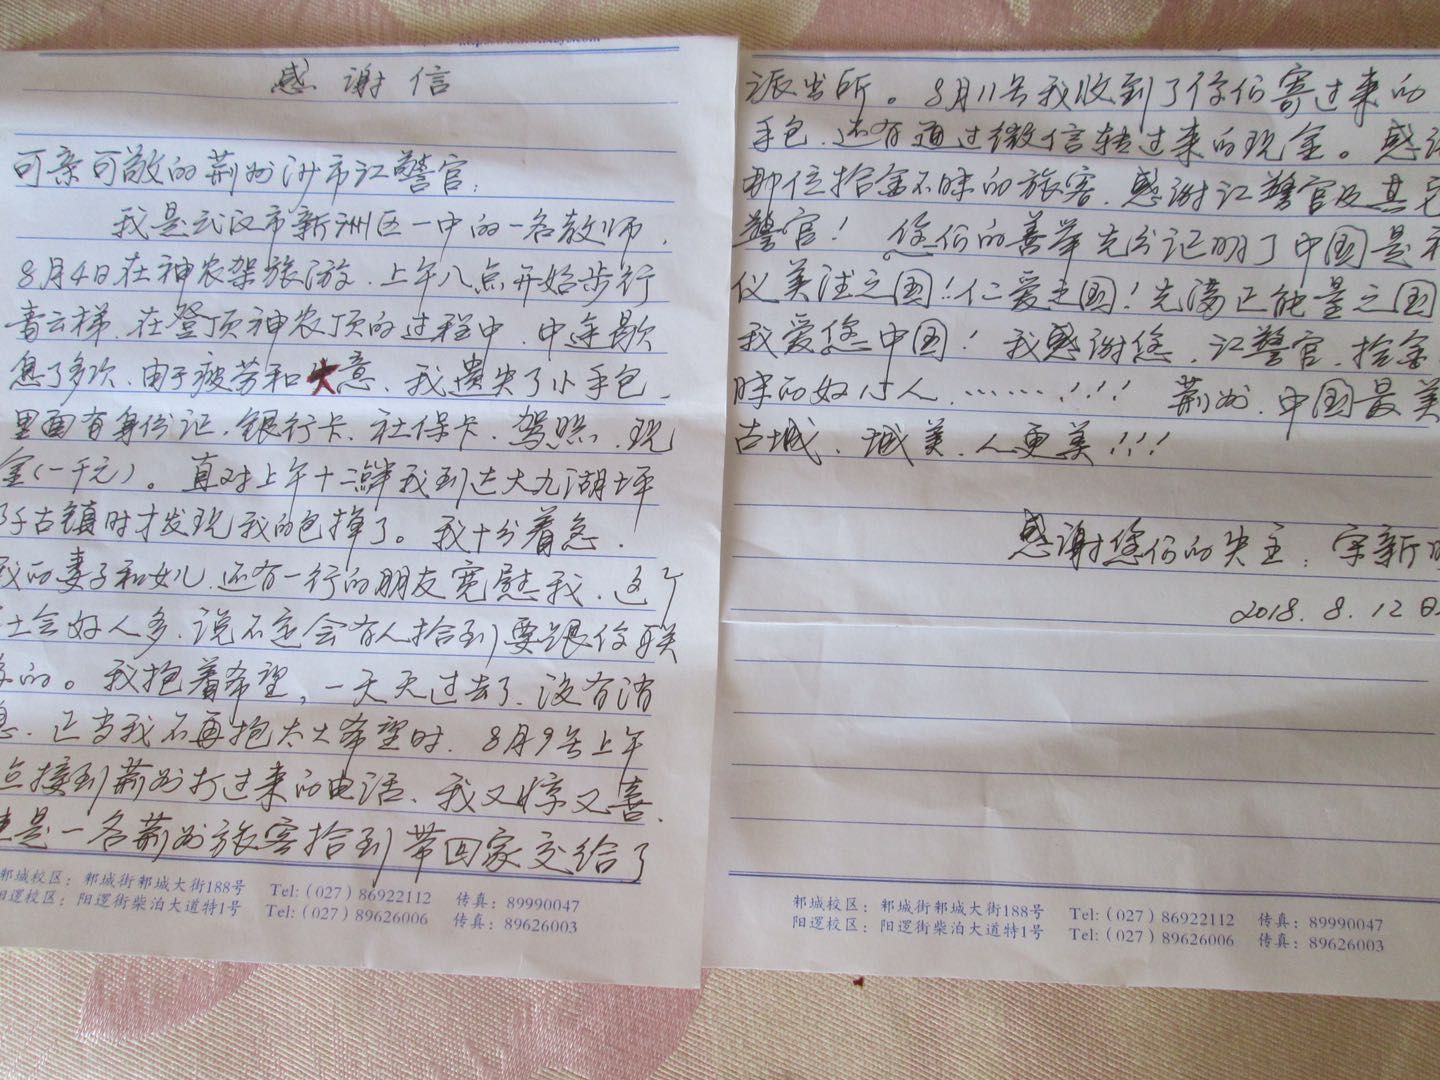 感谢信
可亲可敬的荆州沙市江警官:
我是武汉市新洲区一中的一名教师,
8月4日在神农架旅游,上午八点开始步行
青云梯,在登顶神农顶的过程中,中途歇
息了多次,由于疲劳和大意,我遗失了小手包,
里面有身份证,银行卡,社保卡,驾照,现
金(一千元)。直对上午十二时半我到达大九湖坪
子古镇时才发现我的包掉了。我十分着急,
我的妻子和女儿,还有一行的朋友宽慰我,这个
社会好人多,说不定会有人拾到要跟你联
系的。我抱着希望,一天天过去了,没有消
息,正当我不再抱太大希望时,8月9号上午
点接到荆州打过来的电话,我又惊又喜,
是一名荆州旅客拾到带回家交给了
郭城校区:邾城街邾城大街188号 Tel:(027)86922112 传真:89990047
阳逻校区:阳逻街柴泊大道特1号 Tel:(027)89626006 传真:89626003
派出所。8月11号我收到了你们寄过来的
手包,还有通过微信转过来的现金。感谢
那位拾金不昧的旅客,感谢江警官及其它
警官!您们的善举充分证明了中国是礼
仪美德之国!仁爱之国!充满正能量之国
我爱您中国!我感谢您,江警官,拾金
昧的好心人………!!!荆州,中国最美
古城,城美,人更美!!!
感谢您们的失主:宇新
2018.8.12日
邾城校区:邾城街邾城大街188号 Tel:(027)86922112 传真:89990047
阳逻校区:阳逻街柴泊大道特1号 Tel:(027)89626006 传真:89626003